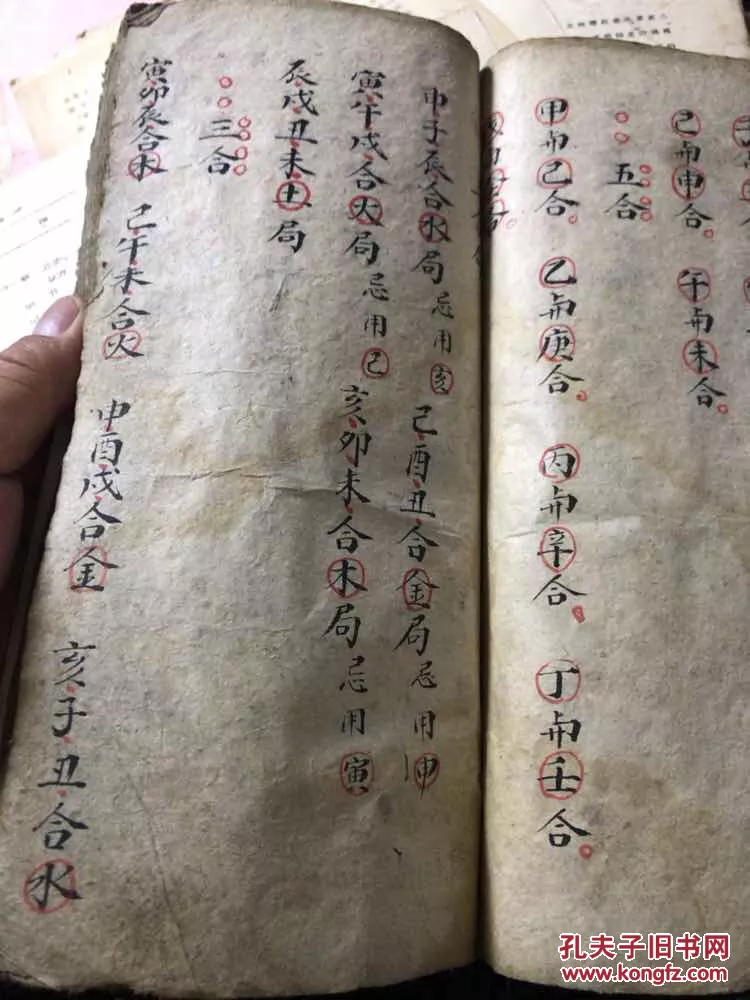 己与申合。 午与未合。
五合
甲与己合。 乙与庚合。 丙与辛合。 丁与壬合。
申子辰合水局忌用亥 己酉丑合金局忌用申
寅午戌合火局忌用己 亥卯未合木局忌用寅
辰戌丑未土局
三合
寅卯辰合木 己午未合火 申酉戌合金 亥子丑合水
孔夫子旧书网
kongfz.com